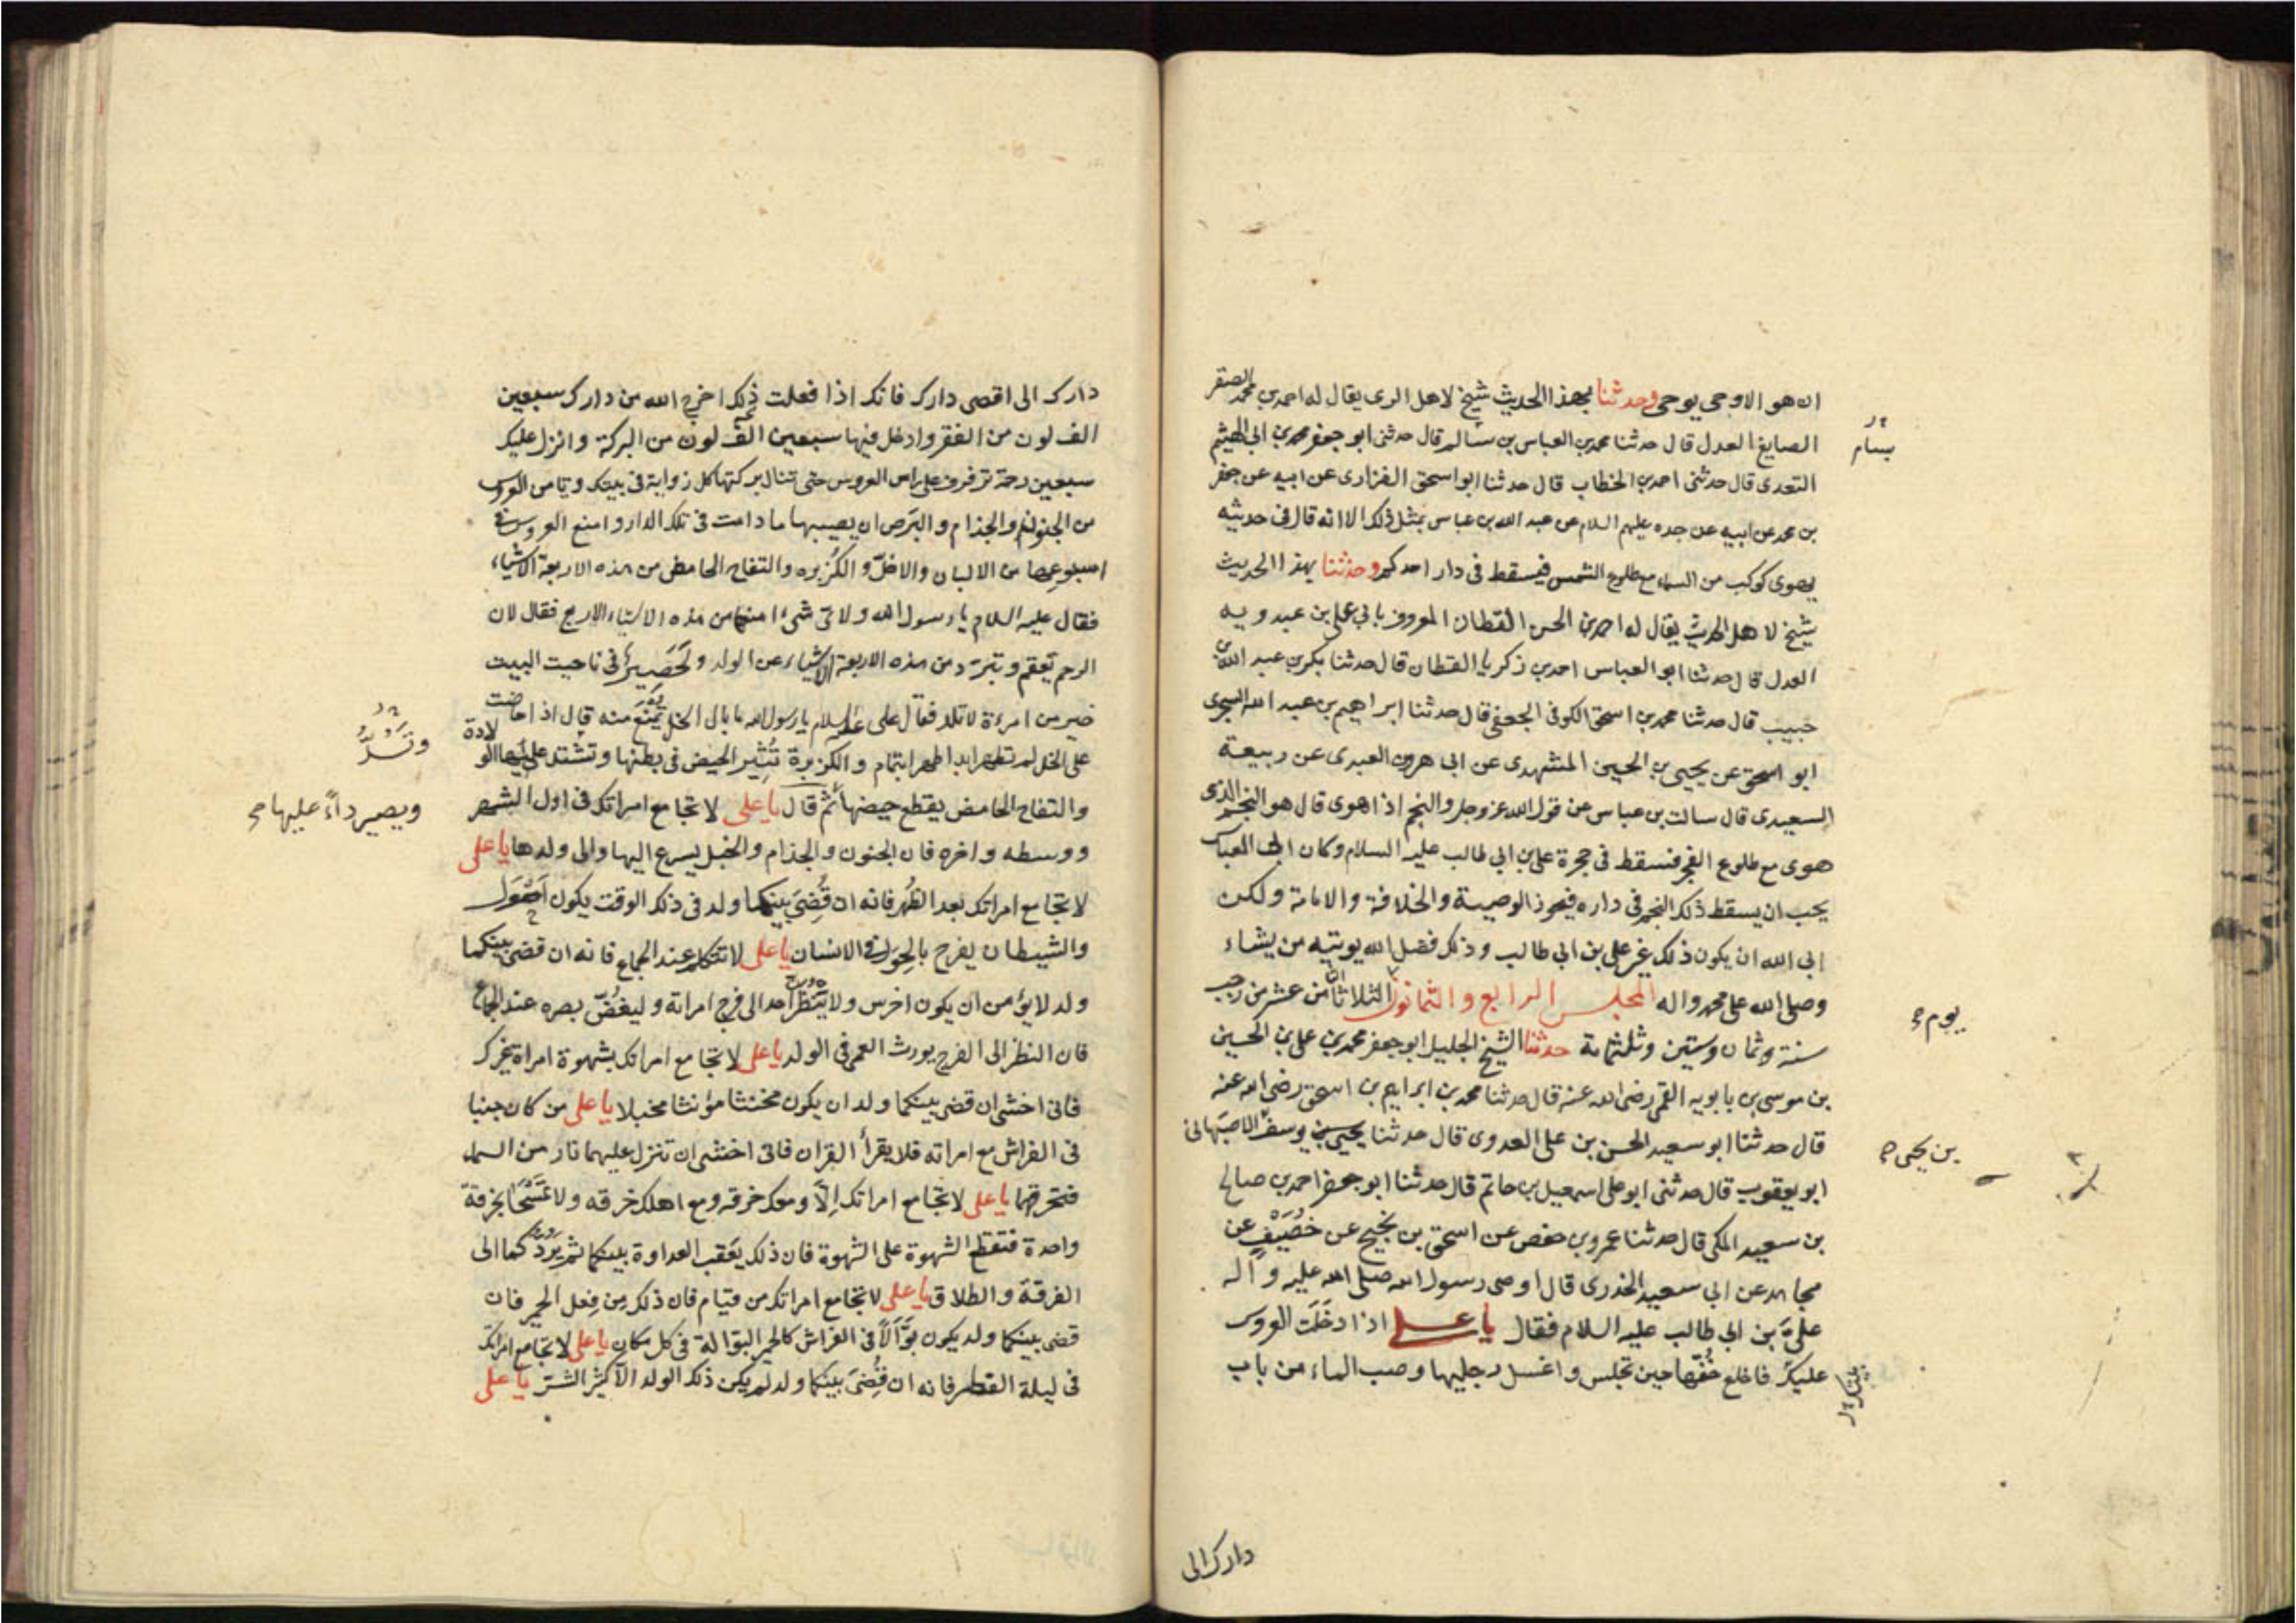 ان هو الا وحى يوحى وحدثنا بهذا الحديث شيخ لاهل الرى يقال له احمد بن محمد الصقر
الصايغ العدل قال حدثنا محمد بن العباس بن سالم قال حدثنى ابو جعفر محمد بن ابى الهيثم
بسام
السعدى قال حدثنى احمد بن الخطاب قال حدثنا ابو اسحق الفزارى عن ابيه عن جعفر
بن محمد عن ابيه عن جده عليهم السلام عن عبد الله بن عباس بمثل ذلك الا انه قال فى حديثه
يهوى كوكب من السماء مع طلوع الشمس فيسقط فى دار احدكم وحدثنا بهذا الحديث
شيخ لاهل الحديث يقال له احمد بن الحسن القطان المعروف بابى على بن عبد ويه
العدل قال حدثنا ابو العباس احمد بن زكريا القطان قال حدثنا بكر بن عبد الله بن
حبيب قال حدثنا محمد بن اسحق الكوفى الجعفى قال حدثنا ابراهيم بن عبد الله السجزى
ابو اسحق عن يحيى بن الحسين المشهدى عن ابى هرون العبدى عن ربيعة
السعيدى قال سالت بن عباس عن قول الله عز وجل والنجم اذا هوى قال هو النجم الذى
هوى مع طلوع الفجر فسقط فى حجرة على بن ابى طالب عليه السلام وكان ابى العباس
يحب ان يسقط ذلك النجم فى داره فيحوز الوصية والخلافة والامامة ولكن
ابى الله ان يكون ذلك غير على بن ابى طالب وذلك فضل الله يوتيه من يشاء
وصلى الله على محمد واله المجلس الرابع والثمانون الثلاثا لثمان عشر من رجب
يوم صح
سنة وثمان وستين وثلثمائة حدثنا الشيخ الجليل ابو جعفر محمد بن على بن الحسين
بن موسى بن بابويه القمى رضى الله عنه قال حدثنا محمد بن ابراهيم بن اسحق رضى الله عنه
قال حدثنا ابو سعيد الحسن بن على العدوى قال حدثنا يحيى بن يوسف الاصبهانى
بن يحيى صح
ابو يعقوب قال حدثنى ابو على اسمعيل بن حاتم قال حدثنا ابو جعفر احمد بن صالح
بن سعيد المكى قال حدثنا عمرو بن حفص عن اسحق بن نجيح عن خُصَيْفٍ عن
مجاهد عن ابى سعيد الخدرى قال اوصى رسول الله صلى الله عليه وآله
على بن ابى طالب عليه السلام فقال يا على اذا دخَلَت العروس
عليك فاخلع خُفّها حين تجلس واغسل رجليها وصب الماء من باب
دارك الى
دارك الى اقصى دارك فانك اذا فعلت ذلك اخرج الله من دارك سبعين
الف لون من الفقر وادخل فيها سبعين الف لون من البركة وانزل عليك
سبعين رحمة ترفرف على راس العروس حتى تنال بركتها كل زواية فى بيتك وتامن العروس
من الجنون والجذام والبَرَص ان يصيبها ما دامت فى تلك الدار وامنع العروس فى
اسبوعها من الالبان والاخلّ والكُزبره والتفاح الحامض من هذه الاربعة الاشياء
فقال عليه السلام يا رسول الله ولاى شئ امنعها من هذه الاشياء الاربع فقال لان
الرحم تعقم وتبرد من هذه الاربعة الاشياء عن الولد ولَحَصِيرٌ فى ناحيت البيت
خير من امرءة لا تلد فقال على عليه السلام يا رسول الله ما بال الخل يمنع منه قال اذا حاضت
على الخل لم تطهر ابدا طهرا بتمام والكزبرة تُثير الحيض فى بطنها وتشتد عليها الولادة
وتُشَدِّدُ
والتفاح الحامض يقطع حيضها ثم قال يا على لا تجامع امراتك فى اول الشهر
ويصير داءً عليها صح
ووسطه واخره فان الجنون والجذام والخبل يسرع اليها والى ولدها يا على
لا تجامع امراتك بعد الظهر فانه ان قُضِىَ بينكما ولد فى ذلك الوقت يكون احْوَل
والشيطان يفرح بالحول فى الانسان يا على لا تتكلم عند الجماع فانه ان قضى بينكما
ولد لا يؤمن ان يكون اخرس ولا ينظرن احد الى فرج امراته وليغُضّ بصره عند الجماع
فان النظر الى الفرج يورث العمى فى الولد يا على لا تجامع امراتك بشهوة امراة غيرك
فانى اخشى ان قضى بينكما ولد ان يكون مخنثا مؤنثا مخبلا يا على من كان جنبا
فى الفراش مع امراته فلا يقرأ القران فانى اخشى ان تنزل عليهما نار من السماء
فتحرقهما يا على لا تجامع امراتك الّا ومعك خرقه ومع اهلك خرقه ولا تمسَّحا بخرقة
واحدة فتقع الشهوة على الشهوة فان ذلك يعَقب العداوة بينكما ثم يردّكما الى
الفرقة والطلاق يا على لا تجامع امراتك من قيام فان ذلك مِن فِعل الحمير فان
قضى بينكما ولد يكون بَوَّالاً فى الفراش كالحمير البوالة فى كل مكان يا على لا تجامع امراتك
فى ليلة الفطر فانه ان قُضِىَ بينكما ولد لم يكن ذلك الولد الا كثير الشرّ يا على